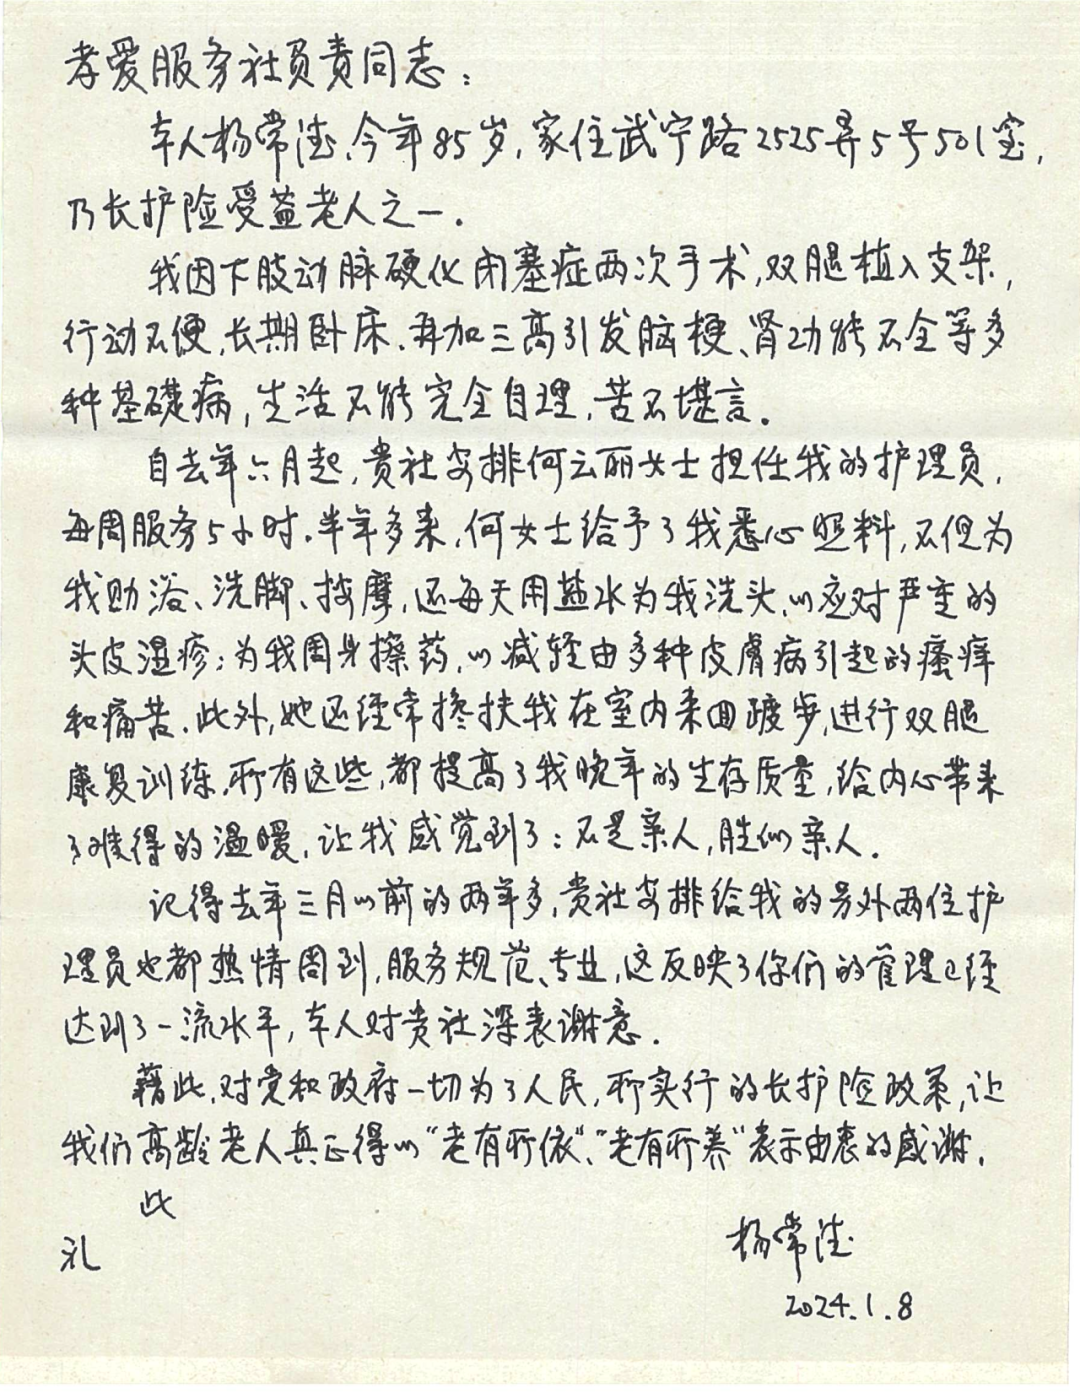 孝爱服务社负责同志：
本人杨常德，今年85岁，家住武宁路2525弄5号501室，
乃长护险受益老人之一．
我因下肢动脉硬化闭塞症两次手术，双腿植入支架，
行动不便，长期卧床．再加三高引发脑梗、肾功能不全等多
种基礎病，生活不能完全自理，苦不堪言．
自去年六月起，贵社安排何云丽女士担任我的护理员，
每周服务5小时．半年多来，何女士给予了我悉心照料，不但为
我助浴、洗脚、按摩，还每天用盐水为我洗头，以应对严重的
头皮湿疹；为我周身擦药，以减轻由多种皮膚病引起的瘙痒
和痛苦．此外，她还经常搀扶我在室内来回踱步，进行双腿
康复训练．所有这些，都提高了我晚年的生存质量，给内心带来
了难得的温暖，让我感觉到了：不是亲人，胜似亲人．
记得去年三月以前的两年多，贵社安排给我的另外两位护
理员也都热情周到，服务规范、专业，这反映了你们的管理已经
达到了一流水平，本人对贵社深表谢意．
藉此，对党和政府一切为了人民，所实行的长护险政策，让
我们高龄老人真正得以“老有所依”、“老有所养”表示由衷的感谢．
此
礼
杨常德
2024.1.8